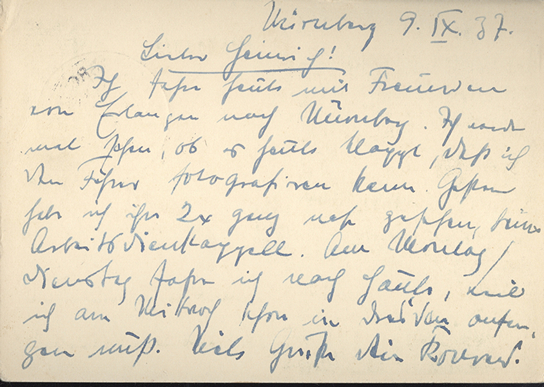 Nürnberg 9. IX. 37.
Lieber Heinrich!
Ich fahre heute mit Freunden
von Erlangen nach Nürnberg. Ich werde
mal sehen, ob es heute klappt, daß ich
den Führer fotografieren kann. Gestern
habe ich ihn 2x ganz nah gesehen, beim
Arbeitsdienstappell. Am Montag/
Dienstag fahre ich nach Hause, weil
ich am Mittwoch schon in Dresden anfan-
gen muß. Viele Grüße Dein